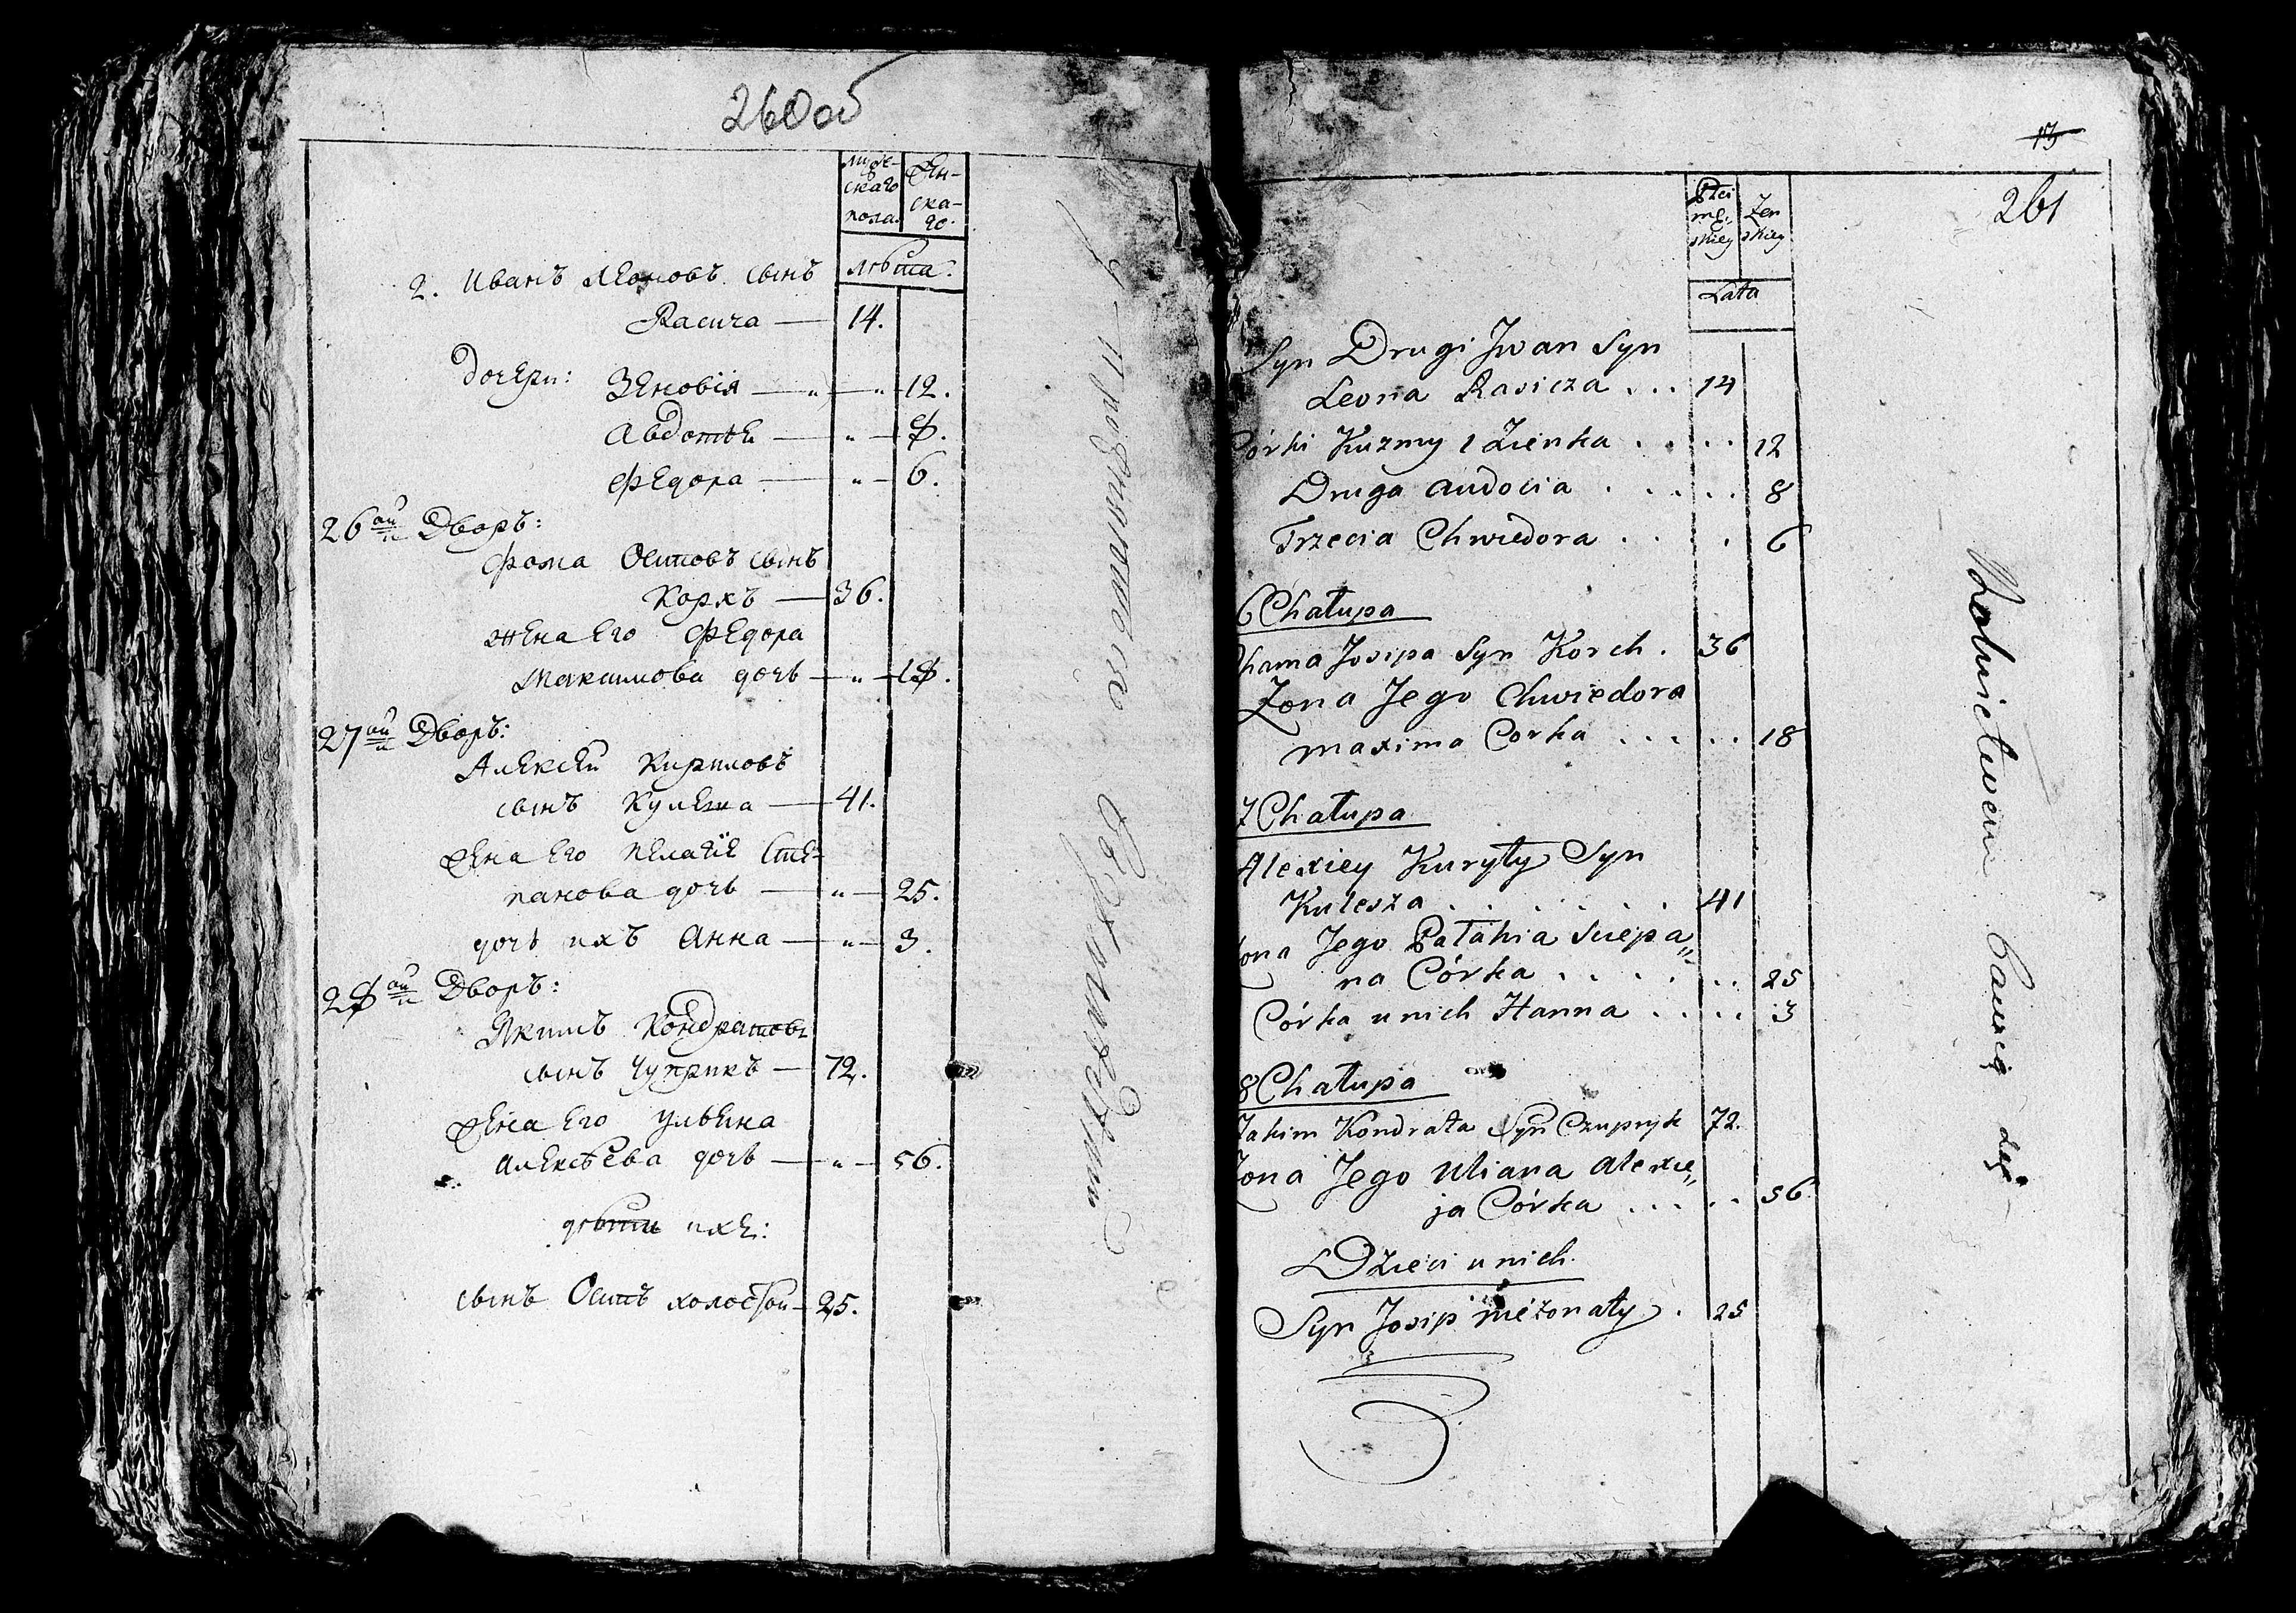 260об
мужескаго пола.
Женскаго.
лѣта:
2. Иванъ Леоновъ сынъ
Расича — 14.
Дочери: Зеновія — „ — „ — 12.
Авдотьи — „ — 8.
Федора — „ — 6.
26ой Дворъ:
Фома Осиповъ сынъ
Корхъ — 36.
жена Его Федора
Максимова дочь — „ — 18.
27ой Дворъ:
Алексей Кириловъ
сынъ Кулеша — 41.
Жена Его Пелагіе Сте-
панова дочь — „ — 25.
дочь ихъ Анна — „ — 3.
28ой Дворъ:
Якимъ Кондратовъ
сынъ Чуприкъ — 72.
Жена Его Ульена
Алексѣева дочь — „ — 56.
дѣти ихъ:
сынъ Осипъ холостой — 25.
13
261
Płci męskiey
Żenskiey
Lata
Syn Drugi Jwan Syn
Leona Rasicza . . . 14
Córki Kuzmy 1 Zienka . . . . . 12
Druga Audocia . . . . . 8
Trzecia Chwiedora . . . . 6
6 Chałupa
Chama Josipa Syn Korch . 36
Zona Jego Chwiedora
maxima Corka . . . . . 18
7 Chałupa
Alexiey Kuryły Syn
Kulesza . . . . . . 41
Zona Jego Pałahia Sciepa„
na Córka . . . . . . . 25
Córka u nich Hanna . . . . 3
8 Chałupa
Jakim Kondrata Syn Czupryk 72.
Zona Jego Uliana Alexie„
ja Córka . . . . . 56
Dzieci u nich.
Syn Josip nieżonaty . 25